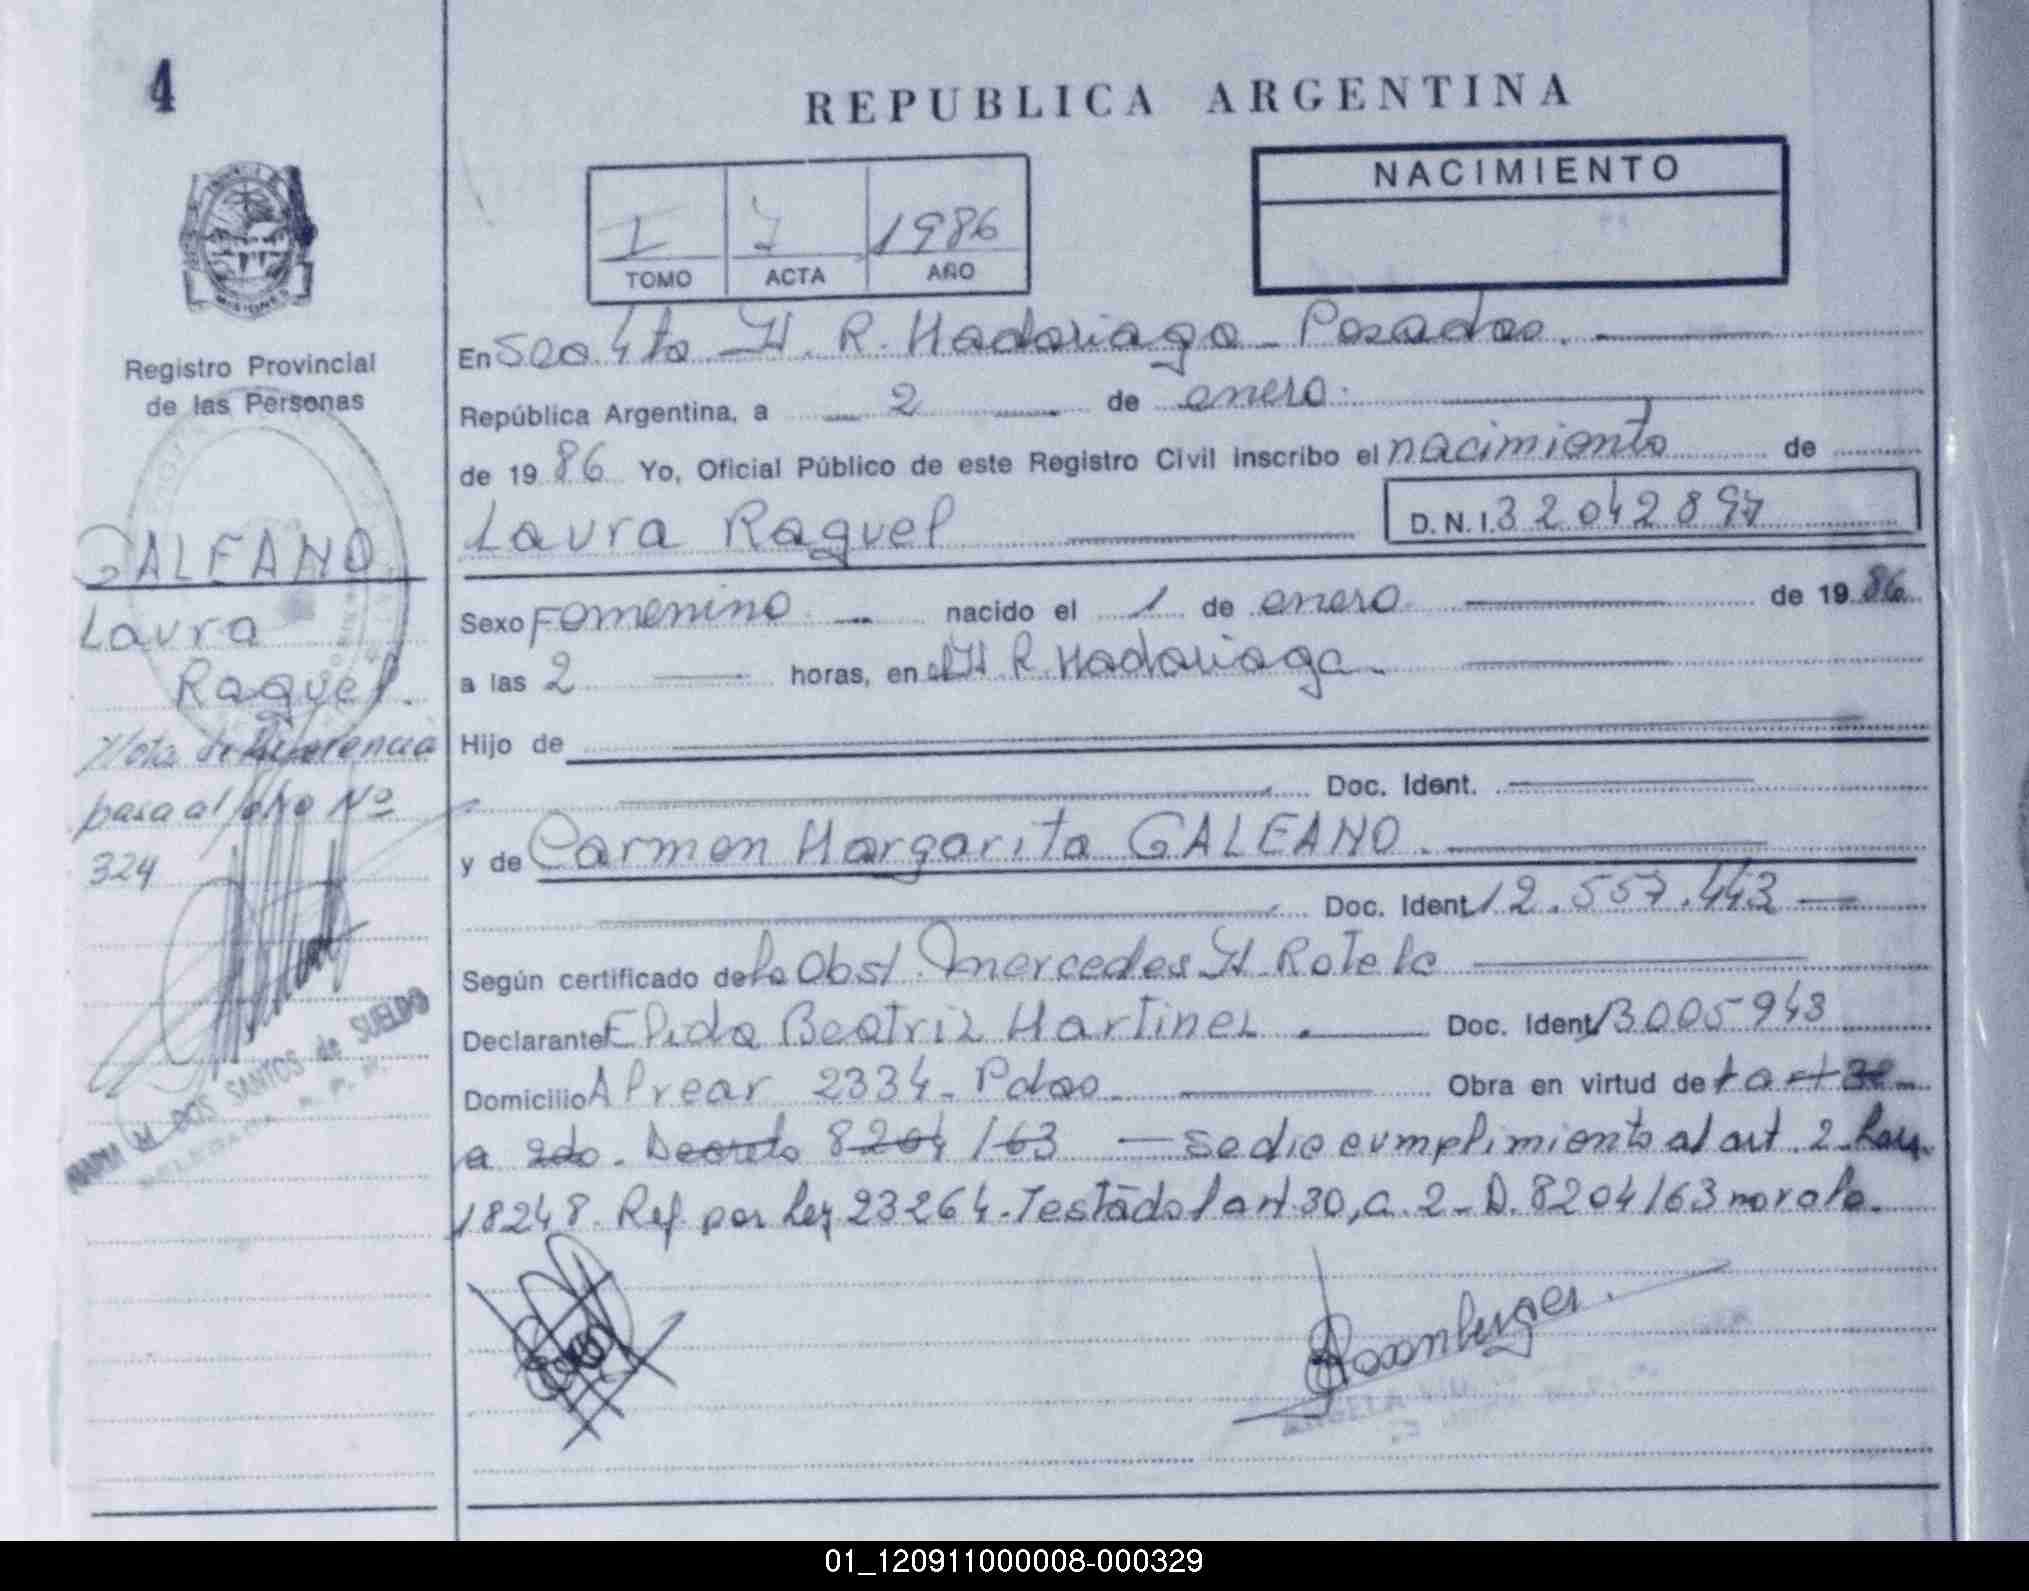 4
REPUBLICA ARGENTINA
NACIMIENTO
I 7 1986
TOMO ACTA AÑO
MISIONES
Registro Provincial
de las Personas
GALEANO
Laura
Raquel.
Nota de Referencia
pasa al folio Nº
324
MARIA DOS SANTOS de SUELDO
En Sec 4ta H. R. Madariaga - Posadas.
República Argentina, a 2 de enero.
de 19 86 Yo, Oficial Público de este Registro Civil inscribo el nacimiento de
Laura Raquel
D.N.I. 32042897
Sexo Femenino nacido el 1 de enero de 19 86
a las 2 horas, en el H R. Madariaga.
Hijo de
Doc. Ident.
y de Carmen Margarita GALEANO.
Doc. Ident. 12.557.443
Según certificado de la Obst. Mercedes H. Rotela
Declarante Elida Beatriz Martinez Doc. Ident. 13005943
Domicilio Alvear 2334 - Pdas Obra en virtud de art 30
a 2do. Decreto 8204/63 - se dio cumplimiento al art. 2 Ley
18248. Ref. por Ley 23264. Testado art 30, a. 2 - D. 8204/63 no vale.
Rosenberger
ANGELA
01_120911000008-000329